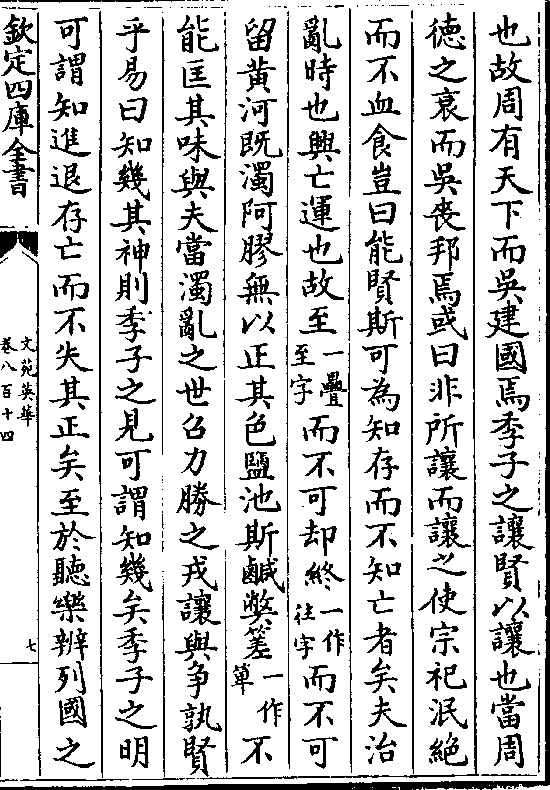 也故周有天下而吳建國焉季子之讓賢以讓也當周
德之衰而吳喪邦焉或曰非所讓而讓之使宗祀泯絶
而不血食豈曰能賢斯可為知存而不知亡者矣夫治
亂時也興亡運也故至一疊至字而不可却終一作往字而不可
留黄河既濁阿膠無以正其色鹽池斯鹹弊箄一作簞不
能匡其味與夫當濁亂之世召力勝之戎讓與争孰賢
乎易曰知幾其神則季子之見可謂知幾矣季子之明
可謂知進退存亡而不失其正矣至於聽樂辨列國之
欽定四庫全書
文苑英華
卷八百十四
七